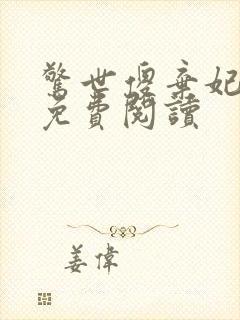 驚世傻棄妃
免費閱讀
姜偉